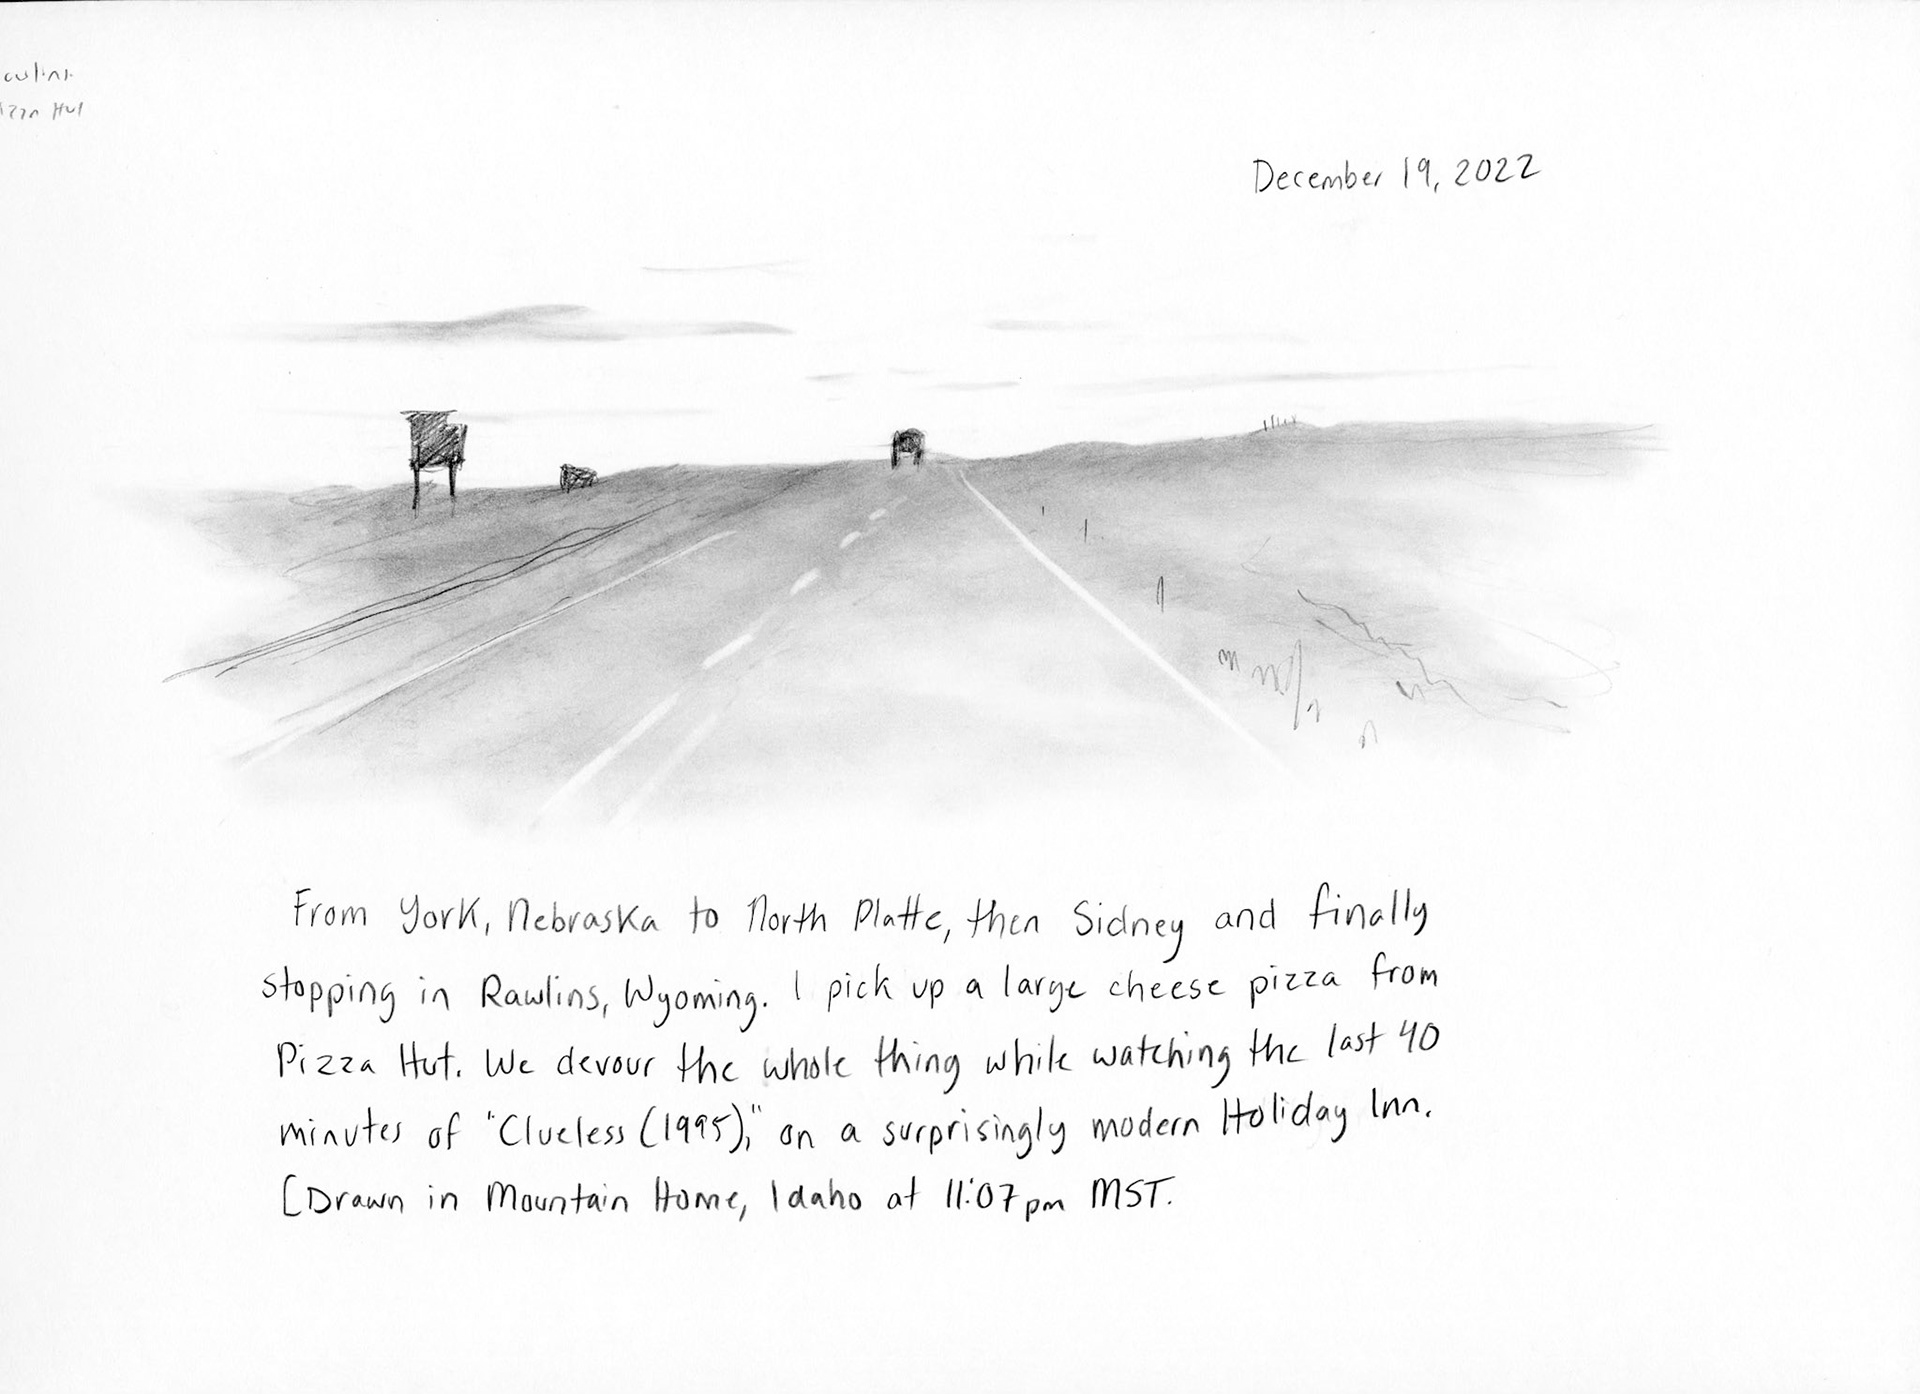 Pizza Hut
December 19, 2022
From York, Nebraska to North Platte, then Sidney and finally
stopping in Rawlins, Wyoming. I pick up a large cheese pizza from
Pizza Hut. We devour the whole thing while watching the last 40
minutes of "Clueless (1995)," on a surprisingly modern Holiday Inn.
[Drawn in Mountain Home, Idaho at 11:07pm MST.